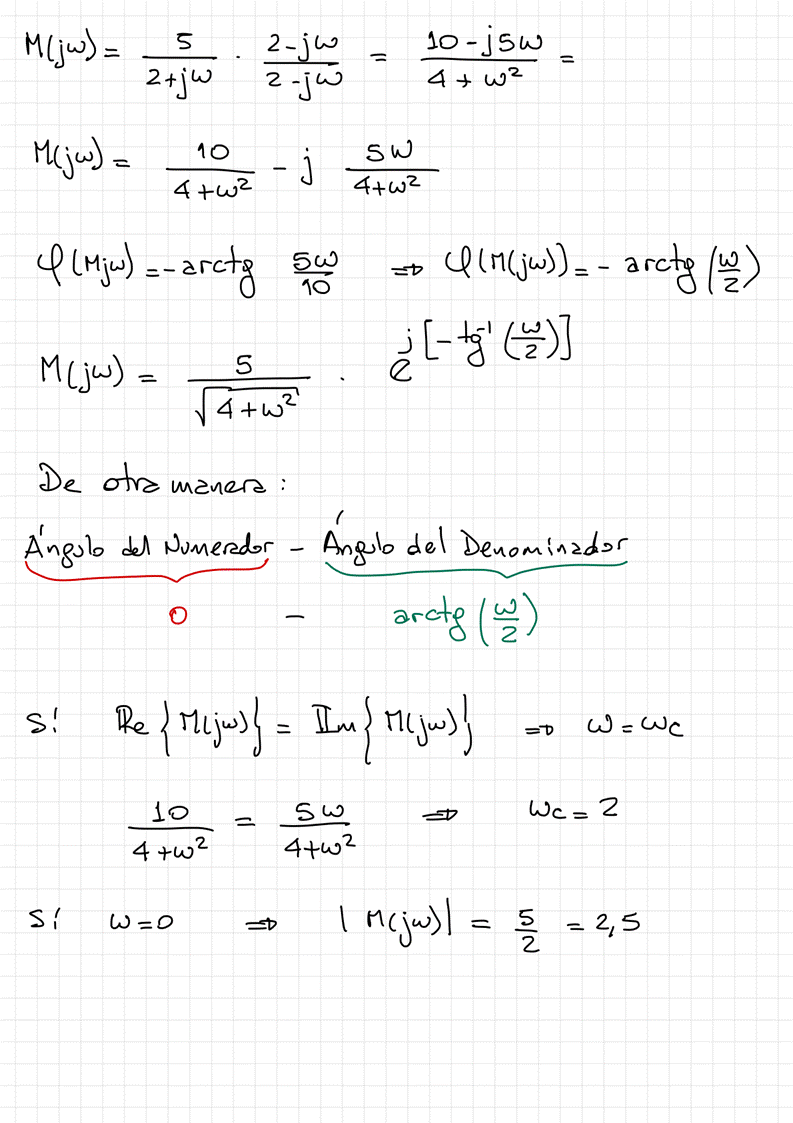 M(jω) = 5/(2+jω) · (2-jω)/(2-jω) = (10-j5ω)/(4+ω²) =
M(jω) = 10/(4+ω²) - j 5ω/(4+ω²)
φ(Mjω) = - arctg 5ω/10 ⇒ φ(M(jω)) = - arctg (ω/2)
M(jω) = 5/√(4+ω²) · e^(j[-tg⁻¹(ω/2)])
De otra manera:
Ángulo del Numerador - Ángulo del Denominador
0 - arctg (ω/2)
Sí Re{M(jω)} = Im{M(jω)} ⇒ ω = ωc
10/(4+ω²) = 5ω/(4+ω²) ⇒ ωc = 2
Sí ω=0 ⇒ |M(jω)| = 5/2 = 2,5